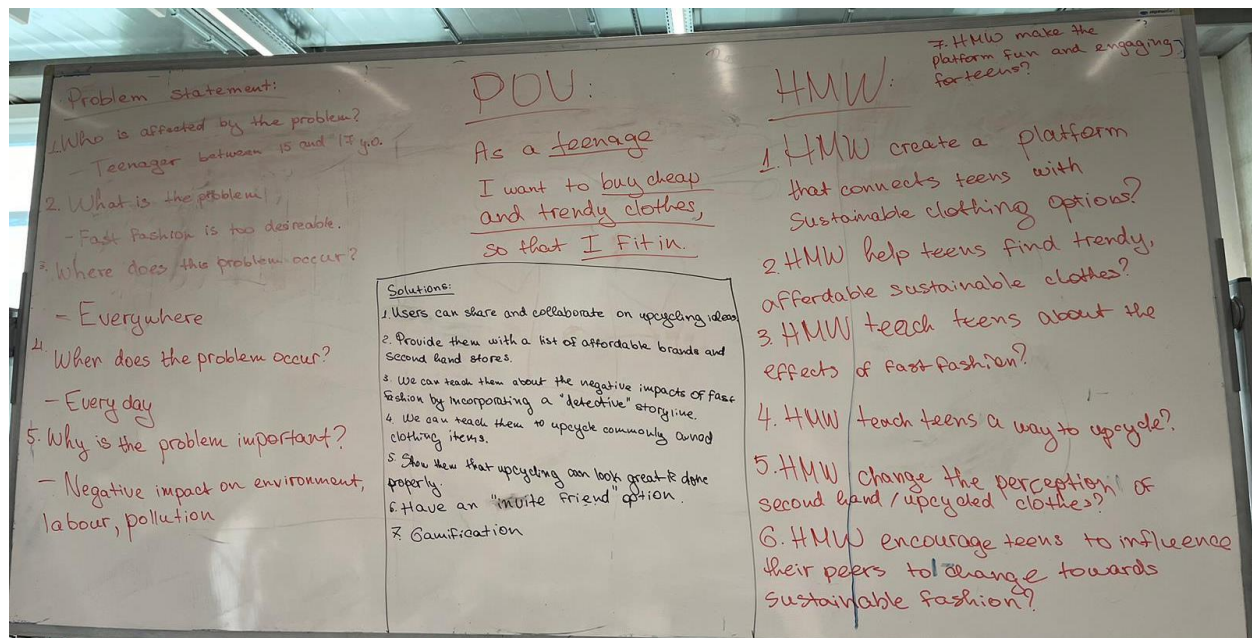 Problem statement:
1. Who is affected by the problem?
- Teenager between 15 and 17 y.o.
2. What is the problem
- Fast fashion is too desireable.
3. Where does this problem occur?
- Everywhere
4. When does the problem occur?
- Every day
5. Why is the problem important?
- Negative impact on environment,
labour, pollution
POV:
As a teenage
I want to buy cheap
and trendy clothes,
so that I fit in.
Solutions:
1. Users can share and collaborate on upcycling ideas
2. Provide them with a list of affordable brands and
second hand stores.
3. We can teach them about the negative impacts of fast
fashion by incorporating a "detective" storyline.
4. We can teach them to upcycle commonly owned
clothing items.
5. Show them that upcycling can look great if done
properly.
6. Have an "invite friend" option.
7. Gamification
HMW:
1. HMW create a platform
that connects teens with
sustainable clothing options?
2. HMW help teens find trendy,
afferdable sustainable clothes?
3. HMW teach teens about the
effects of fast fashion?
4. HMW teach teens a way to upcycle?
5. HMW change the perception of
second hand/upcycled clothes?
6. HMW encourage teens to influence
their peers to change towards
sustainable fashion?
7. HMW make the
platform fun and engaging
for teens?